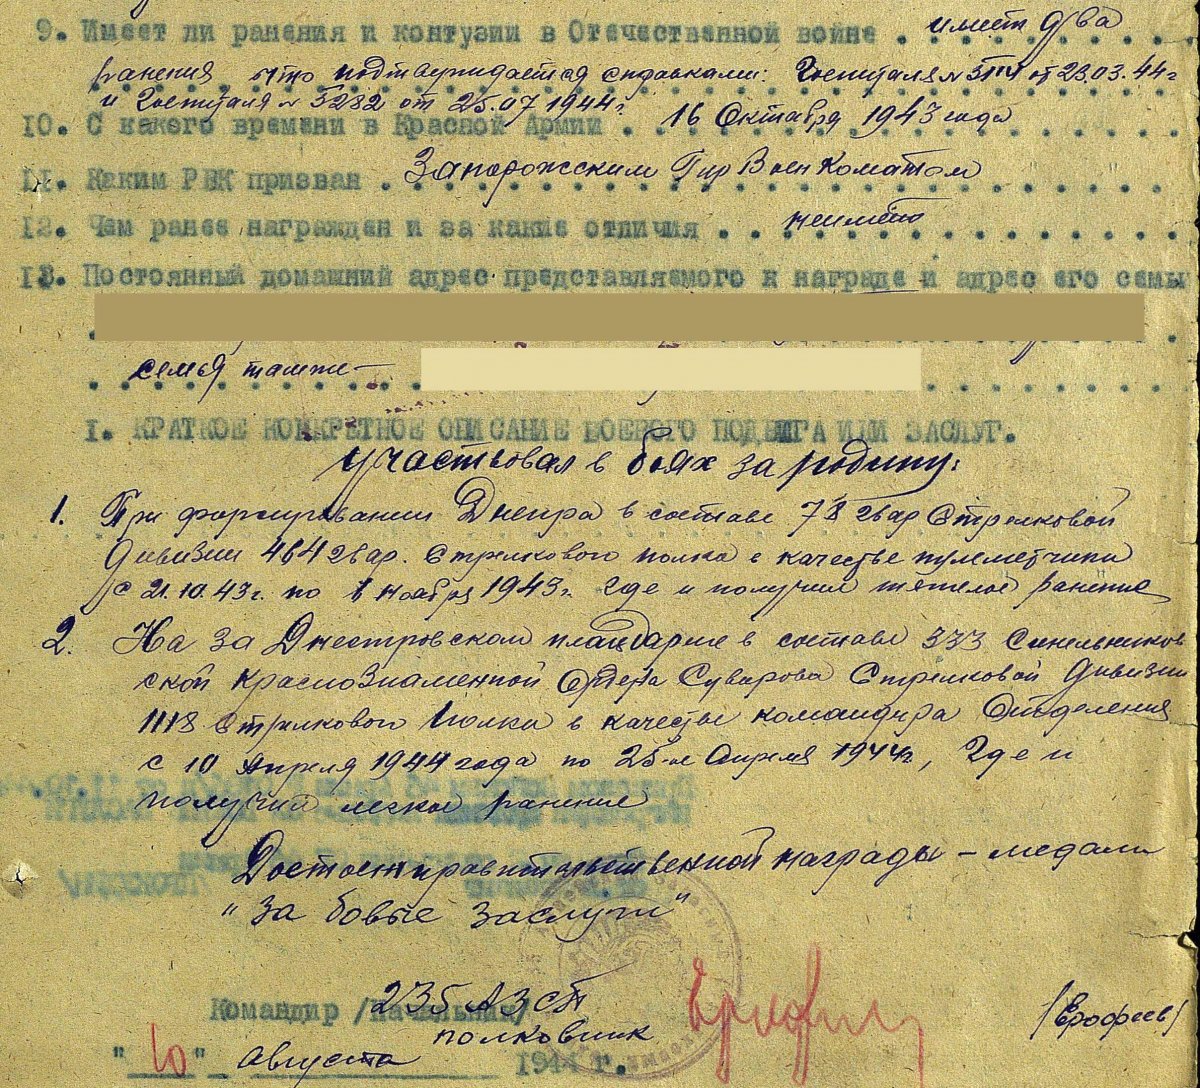 9. Имеет ли ранения и контузии в Отечественной войне . имеет два
ранения что подтверждается справками: Госпиталя № от 23.03.44 г
и Госпиталя № 5232 от 25.07 1944 г.
10. С какого времени в Красной Армии . . 16 Октября 1943 года
11. Каким РВК призван . Запорожским Гор Воен Коматом
12. Чем ранее награжден и за какие отличия . . неимеет
13. Постоянный домашний адрес представляемого к награде и адрес его семьи
семья также —
I. КРАТКОЕ КОНКРЕТНОЕ ОПИСАНИЕ БОЕВОГО ПОДВИГА ИЛИ ЗАСЛУГ.
участвовал в боях за родину:
1. При форсировании Днепра в составе 78 гвар Стрелковой
Дивизии 464 гвар. Стрелкового полка в качестве пулеметчика
с 21.10.43 г. по 1 ноября 1943 г. где и получил тяжелое ранение
2. На за Днестровском плацдарме в составе 333 Синельников
ской Краснознаменной Ордера Суварова Стрелковой Дивизии
1118 Стрелкового Полка в качестве командира Отделения
с 10 Апреля 1944 года по 25-е Апреля 1944 г, Где и
получил легкое ранение
Достоен правительственной награды — медали
"За бовые заслуги"
Командир /Начальник/ 235 АЗСП
полковник
(Ерофеев)
"10" Августа 1944 г.